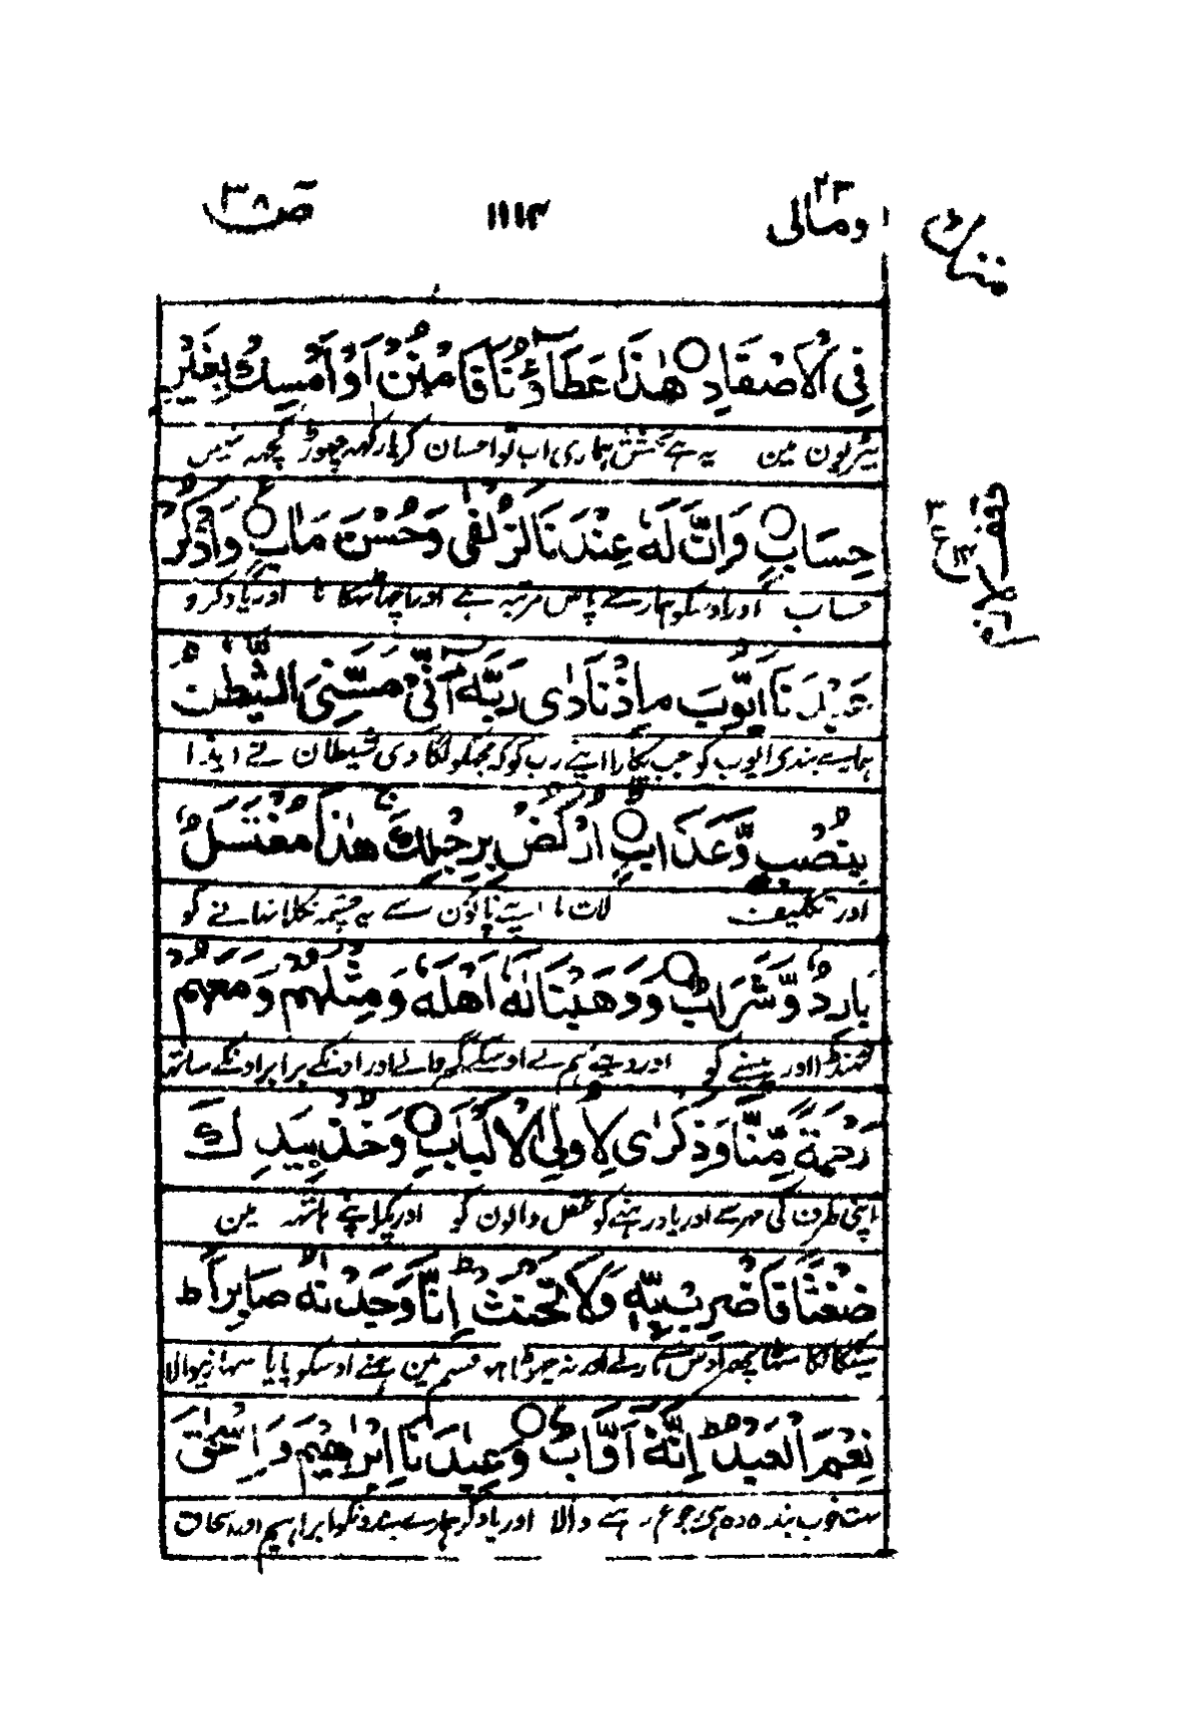 ومالی ٢٣
١١١٤
صٓ ٣٨
منزل
فِی الْاَصْفَادِ ○ هٰذَا عَطَآؤُنَا فَامْنُنْ اَوْ اَمْسِكْ بِغَیْرِ
بیڑیون مین یہ ہے بخشش ہماری اب تو احسان کر یا رکھہ چھوڑ کچھہ نہیں
حِسَابٍ ○ وَاِنَّ لَهٗ عِنْدَنَا لَزُلْفٰی وَحُسْنَ مَاٰبٍ ○ وَاذْكُرْ
حساب اور اوسکو ہمارے پاس مرتبہ ہے اور اچھا ٹھکانا اور یاد کرو
عَبْدَنَا اَیُّوْبَ م اِذْ نَادٰی رَبَّهٗۤ اَنِّیْ مَسَّنِیَ الشَّیْطٰنُ
ہمارے بندی ایوب کو جب پکارا اپنے رب کو کہ مجھکو لگا دی شیطان نے ایذا
بِنُصْبٍ وَّعَذَابٍ ○ اُرْكُضْ بِرِجْلِكَ هٰذَا مُغْتَسَلٌۢ
اور تکلیف لات مار اپنے پاؤن سے یہ چشمہ نکلا نہانے کو
بَارِدٌ وَّشَرَابٌ ○ وَوَهَبْنَا لَهٗۤ اَهْلَهٗ وَمِثْلَهُمْ وَمَعَهُمْ
ٹھنڈا اور پینے کو اور دیے ہم نے اوسکے گھر والے اور اونکے برابر اونکے ساتھ
رَحْمَةً مِّنَّا وَذِكْرٰی لِاُولِی الْاَلْبَابِ ○ وَخُذْ بِیَدِكَ
اپنی طرف کی مہر سے اور یاد رہنے کو عقل والون کو اور پکڑ اپنے ہاتھہ مین
ضِغْثًا فَاضْرِبْ بِّهٖ وَلَا تَحْنَثْ ط اِنَّا وَجَدْنٰهُ صَابِرًا ط
سینکا کا مٹھا پھر اوس سے مار لے اور نہ جھوٹا ہو قسم مین ہمنے اوسکو پایا سہارنیوالا
نِعْمَ الْعَبْدُ ط اِنَّهٗۤ اَوَّابٌ ○ وَ عِبٰدَنَا اِبْرٰهِیْمَ وَ اِسْحٰقَ
بہت خوب بندہ وہ ہی رجوع رہنے والا اور یاد کر ہمارے بندونکو ابراہیم اور اسحاق